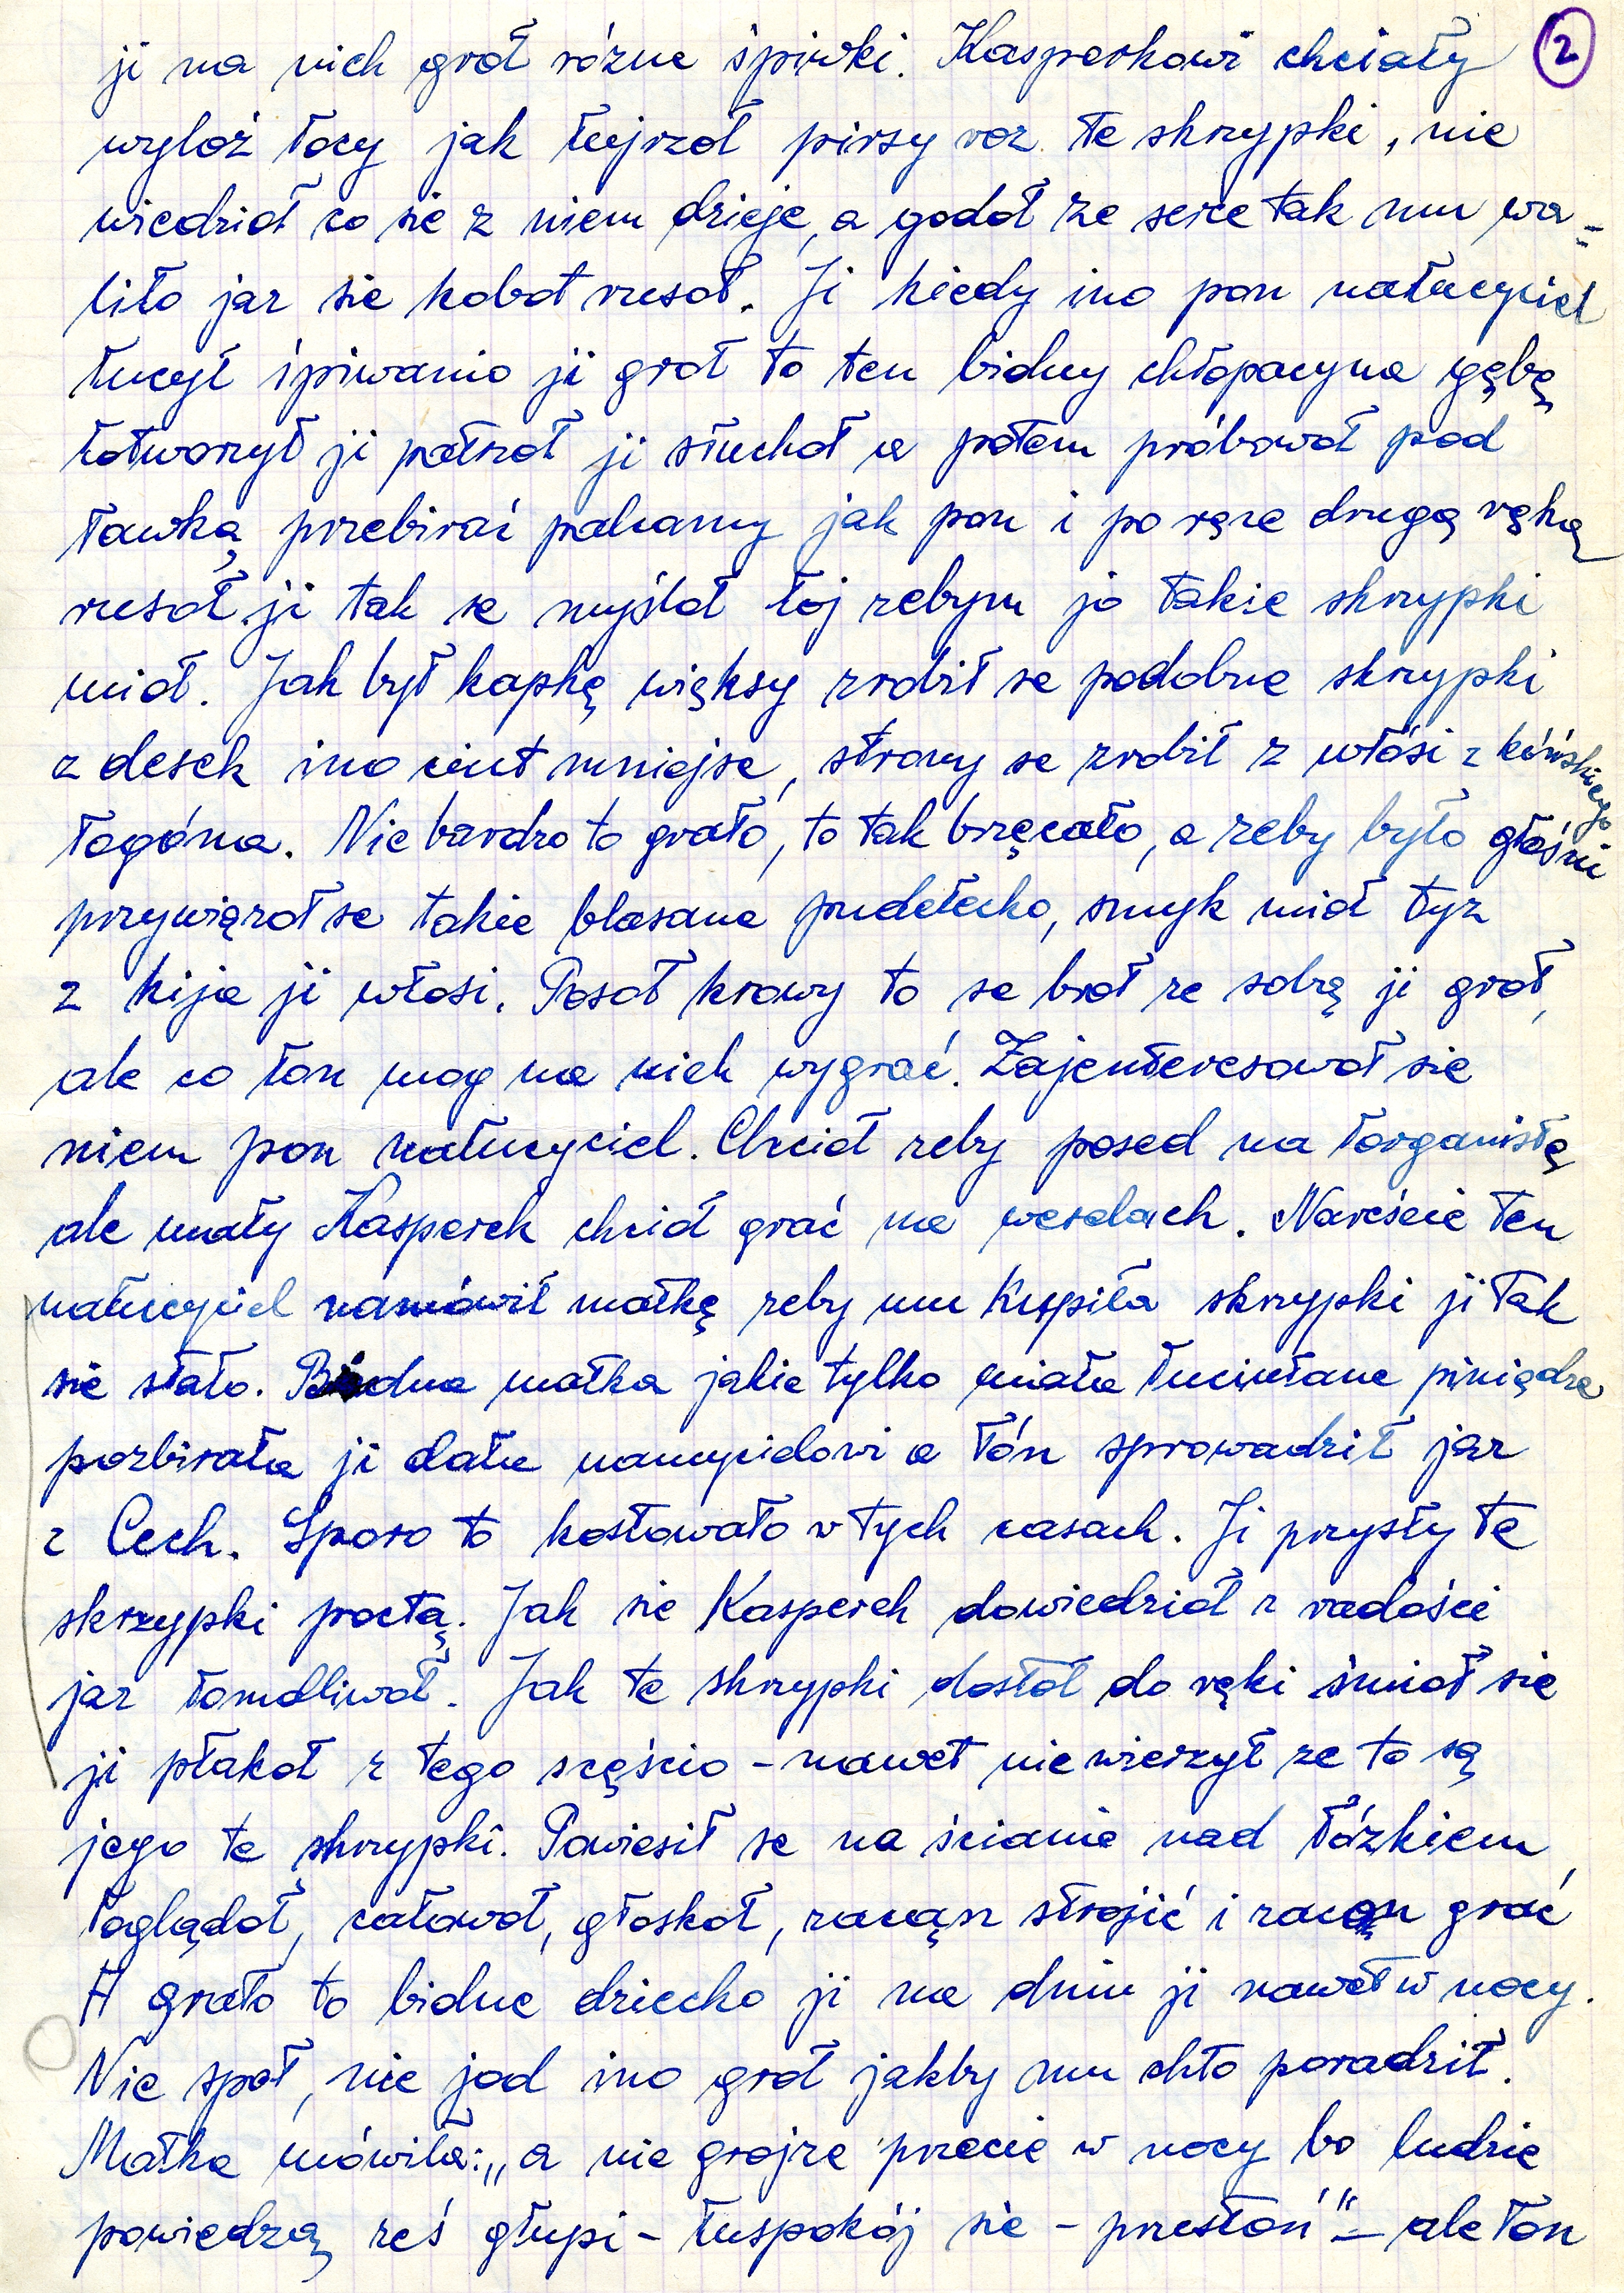 ji na nich groł rózne śpiwki. Kasperkowi chciały ②
wyloź łocy jak łujrzoł pirsy roz te skrzypki, nie
wiedzioł co sie z niem dzieje, a godoł ze serce tak mu wa=
liło jaz sie kabot rusoł. Ji kiedy ino pon naucyciel
łucył śpiwanio ji groł to ten bidny chłopacyna gębę
łotworzył ji patrzoł ji słuchoł a potem próbowoł pod
ławką przebirać palcamy jak pon i po ręce drugą ręką
rusoł ji tak se myśloł łoj zebym jo takie skrzypki
mioł. Jak był kapkę więksy zrobił se podobne skrzypki
z desek ino ciut mniejse, strony se zrobił z włosi z kóńskiego
łogóna. Nie bardzo to grało, to tak brzęcało, a zeby było głośni
przywiązoł se takie blasane pudełecko, smyk mioł tyz
z kija ji włosi. Posoł krowy to se broł ze sobą ji groł,
ale co łon mog na nich wygrać. Zajenteresowoł sie
niem pon naucyciel. Chcioł zeby posed na łorganistę
ale mały Kasperek chcioł grać na weselach. Narescie ten
naucyciel namówił matkę zeby mu kupiła skrzypki ji tak
sie stało. Bidna matka jakie tylko miała łuciułane piniądze
pozbirała ji dała naucycielowi a łón sprowadził jaz
z Cech. Sporo to kostowało w tych casach. Ji przysły te
skrzypki poctą. Jak sie Kasperek dowiedzioł z radości
jaz łomdliwoł. Jak te skrzypki dostoł do ręki śmioł sie
ji płakoł z tego scęścio - nawet nie wierzył ze to są
jego te skrzypki. Powiesił se na ścianie nad łózkiem,
łoglądoł, całowoł, głoskoł, zacąn stroić i zacąn grać
A grało to bidne dziecko ji na dniu ji nawet w nocy.
Nie społ, nie jod ino groł jakby mu chto poradził.
Matka mówiła: „a nie grojze przecie w nocy bo ludzie
powiedzą ześ głupi - łuspokój sie - przestoń" - ale łon